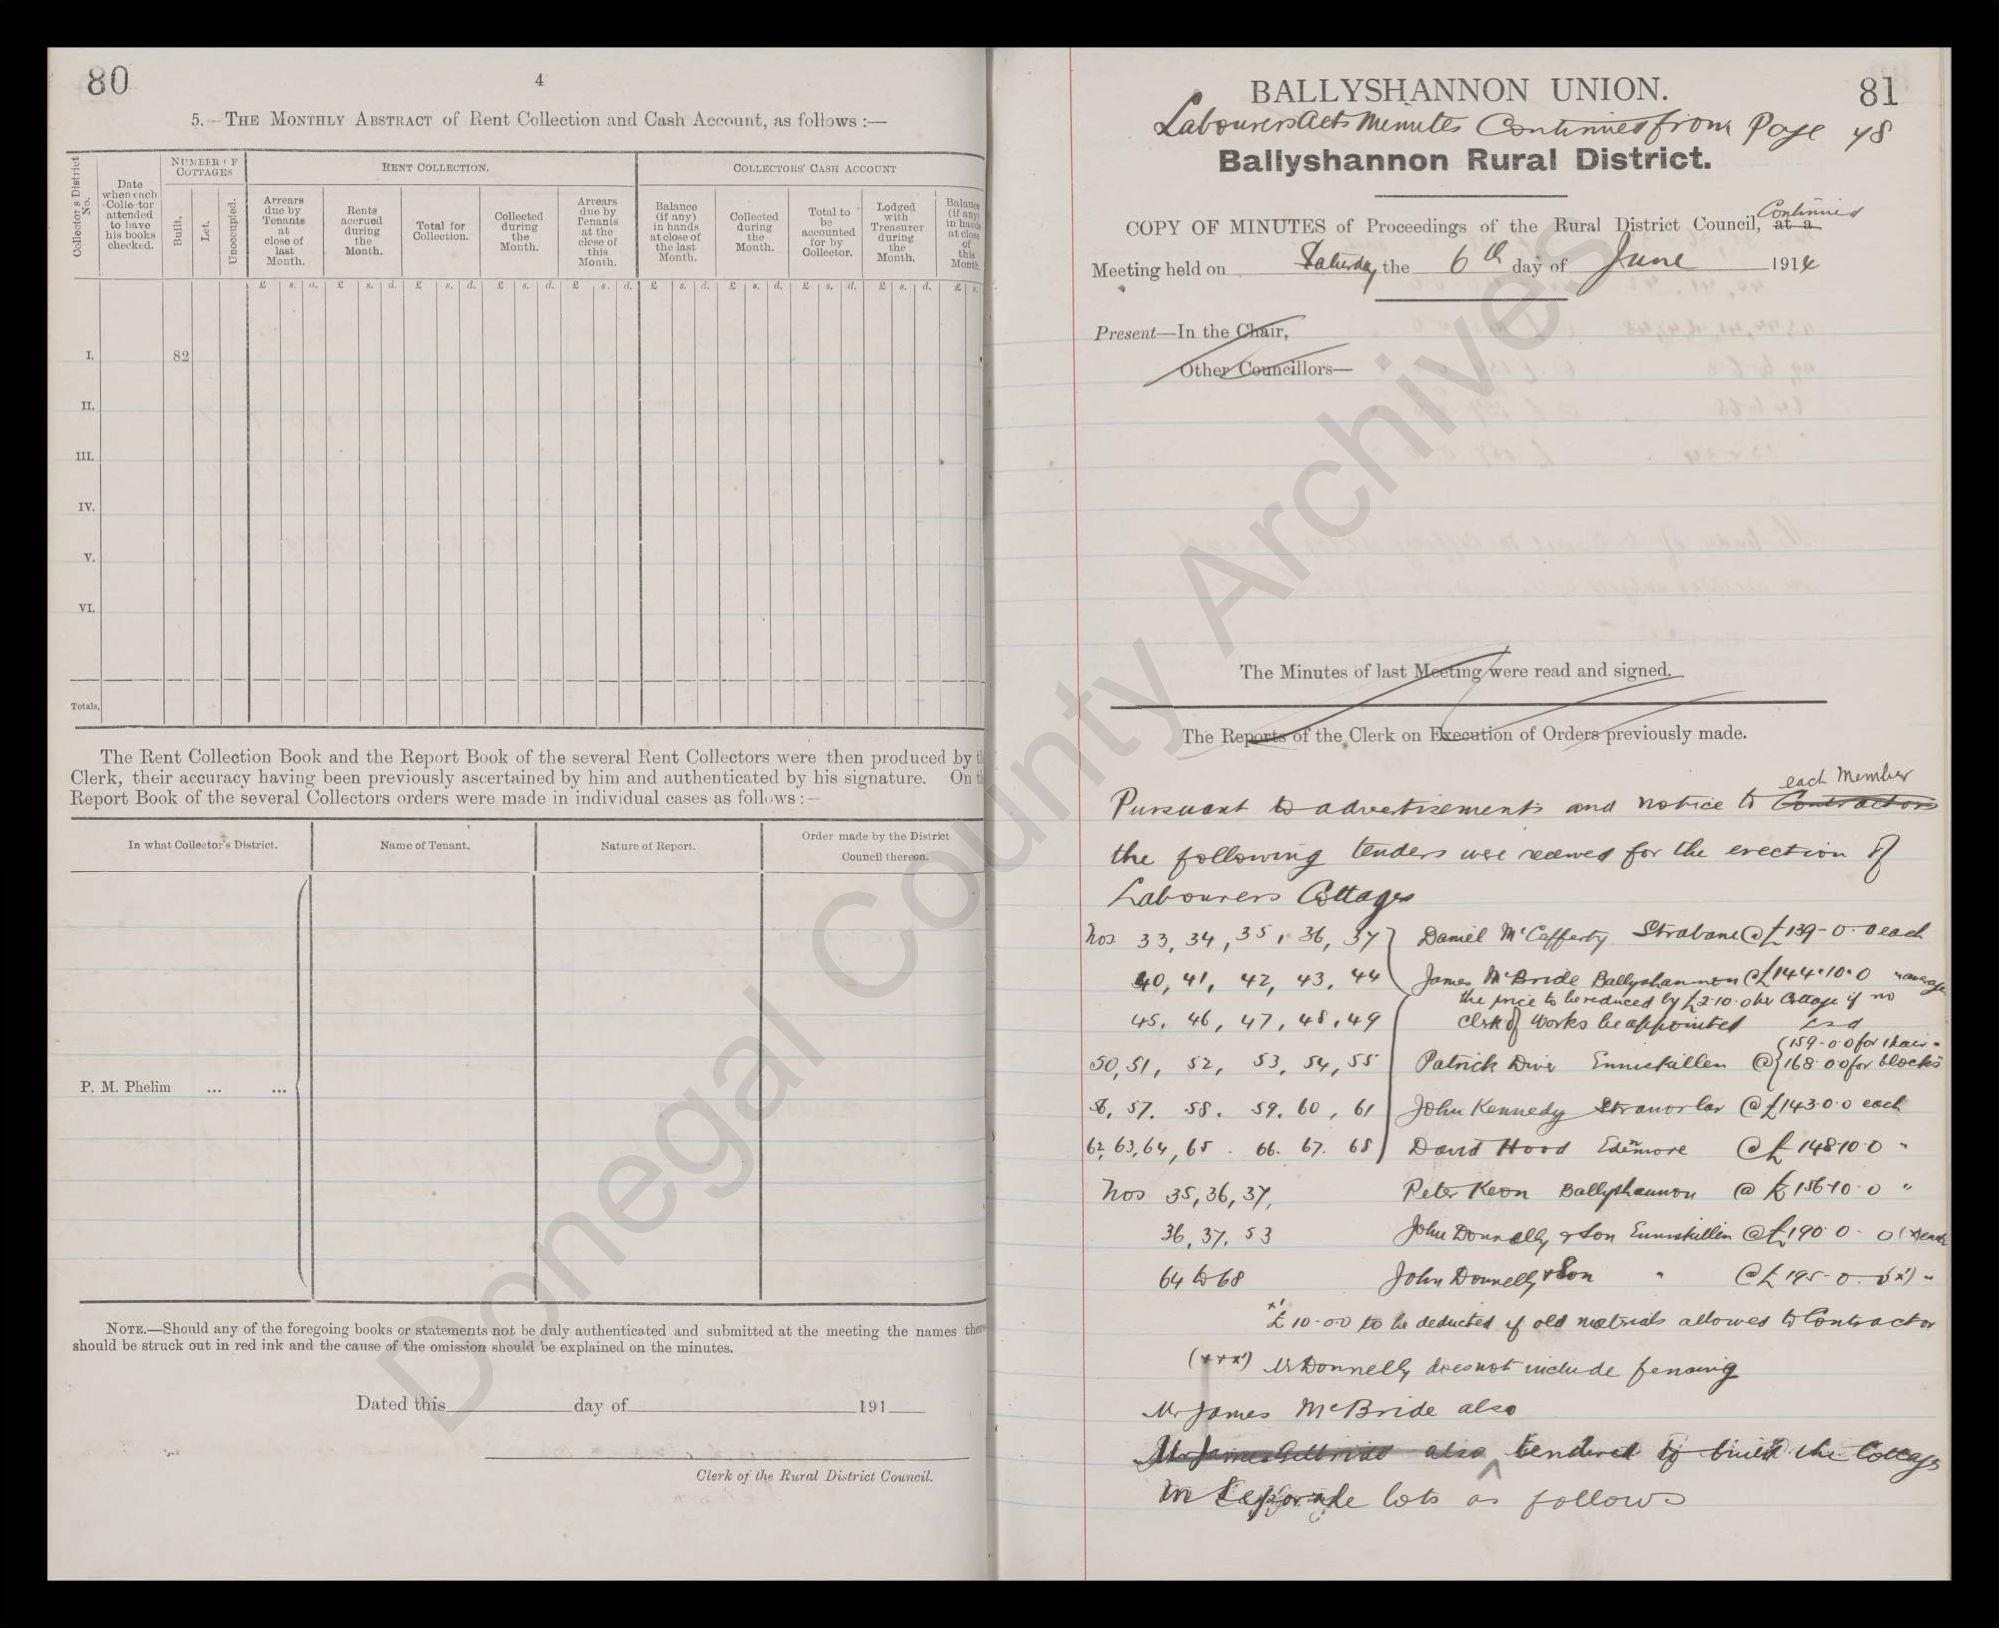 80
4
5.—THE MONTHLY ABSTRACT of Rent Collection and Cash Account, as follows :—
Collector's District No.
Date when each Collector attended to have his books checked.
NUMBER OF COTTAGES
Built.
Let.
Unoccupied.
RENT COLLECTION.
Arrears due by Tenants at close of last Month.
Rents accrued during the Month.
Total for Collection.
Collected during the Month.
Arrears due by Tenants at the close of this Month.
COLLECTORS' CASH ACCOUNT
Balance (if any) in hands at close of the last Month.
Collected during the Month.
Total to be accounted for by Collector.
Lodged with Treasurer during the Month.
Balance (if any) in hands at close of this Month
£ s. d. £ s. d. £ s. d. £ s. d. £ s. d. £ s. d. £ s. d. £ s. d. £ s. d. £ s.
I. 82
II.
III.
IV.
V.
VI.
Totals,
The Rent Collection Book and the Report Book of the several Rent Collectors were then produced by
Clerk, their accuracy having been previously ascertained by him and authenticated by his signature. On
Report Book of the several Collectors orders were made in individual cases as follows :—
In what Collector's District.
Name of Tenant.
Nature of Report.
Order made by the District Council thereon.
P. M. Phelim ... ...
NOTE.—Should any of the foregoing books or statements not be duly authenticated and submitted at the meeting the names
should be struck out in red ink and the cause of the omission should be explained on the minutes.
Dated this day of 191
Clerk of the Rural District Council.
BALLYSHANNON UNION.
81
Labourers Acts Minutes Continued from Page 78
Ballyshannon Rural District.
Continued
COPY OF MINUTES of Proceedings of the Rural District Council, at a
Meeting held on Saturday the 6th day of June 1914
Present—In the Chair,
Other Councillors—
The Minutes of last Meeting were read and signed.
The Reports of the Clerk on Execution of Orders previously made.
each Member
Pursuant to advertisements and notice to Contractors
the following tenders were received for the erection of
Labourers Cottages
Nos 33, 34, 35, 36, 37 Daniel McCafferty Strabane @ £139-0-0 each
40, 41, 42, 43, 44 James McBride Ballyshannon @ £144.10.0 average
the price to be reduced by £2.10.0 per Cottage if no
45, 46, 47, 48, 49 Clerk of Works be appointed £ s d
(159-0-0 for
50, 51, 52, 53, 54, 55 Patrick Diver Enniskillen @ 168.0.0 for blocks
56, 57. 58. 59. 60, 61 John Kennedy Stranorlar @ £143.0.0 each
62, 63, 64, 65. 66. 67. 68 David Hood Edenmore @ £148.10.0 "
Nos 35, 36, 37, Peter Keon Ballyshannon @ £156.10.0 "
36, 37, 53 John Donnelly & Son Enniskillen @ £190.0.0 (x) each
64 to 68 John Donnelly & Son " @ £195-0-0 (x) "
(x) £10-0-0 to be deducted if old materials allowed to Contractor
(xxx) Mr Donnelly does not include fencing
Mr James McBride also
Mr James McBride also tendered to build the Cottages
in separate lots as follows
Donegal County Archives